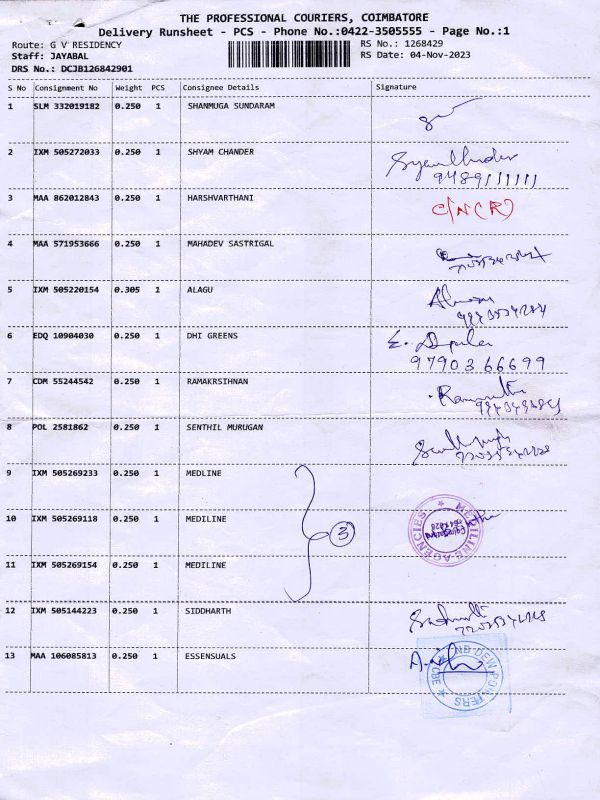 THE PROFESSIONAL COURIERS, COIMBATORE
Delivery Runsheet - PCS - Phone No.:0422-3505555 - Page No.:1
Route: G V RESIDENCY
RS No.: 1268429
Staff: JAYABAL
RS Date: 04-Nov-2023
DRS No.: DCJB126842901
S No Consignment No Weight PCS Consignee Details Signature
1 SLM 332019182 0.250 1 SHANMUGA SUNDARAM
2 IXM 505272033 0.250 1 SHYAM CHANDER
9489111111
3 MAA 862012843 0.250 1 HARSHVARTHANI C/N(R)
4 MAA 571953666 0.250 1 MAHADEV SASTRIGAL
5 IXM 505220154 0.305 1 ALAGU
6 EDQ 10904030 0.250 1 DHI GREENS
9790366699
7 CDM 55244542 0.250 1 RAMAKRSIHNAN
8 POL 2581862 0.250 1 SENTHIL MURUGAN
9 IXM 505269233 0.250 1 MEDLINE
10 IXM 505269118 0.250 1 MEDILINE
3
11 IXM 505269154 0.250 1 MEDILINE
12 IXM 505144223 0.250 1 SIDDHARTH
13 MAA 106085813 0.250 1 ESSENSUALS